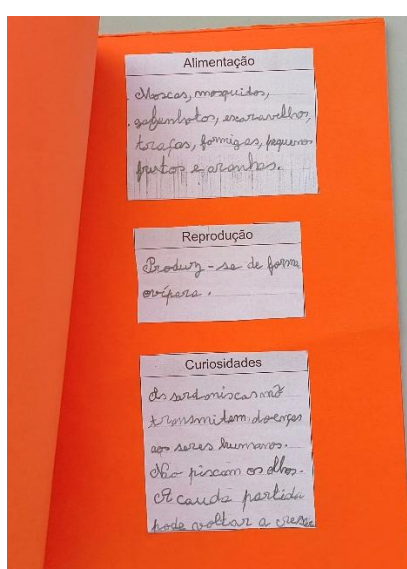 Alimentação
Moscas, mosquitos,
gafanhotos, escaravelhos,
traças, formigas, pequenos
frutos e aranhas.
Reprodução
Produz-se de forma
ovípara.
Curiosidades
As sardaniscas não
transmitem doenças
aos seres humanos.
Não piscam os olhos.
A cauda partida
pode voltar a crescer